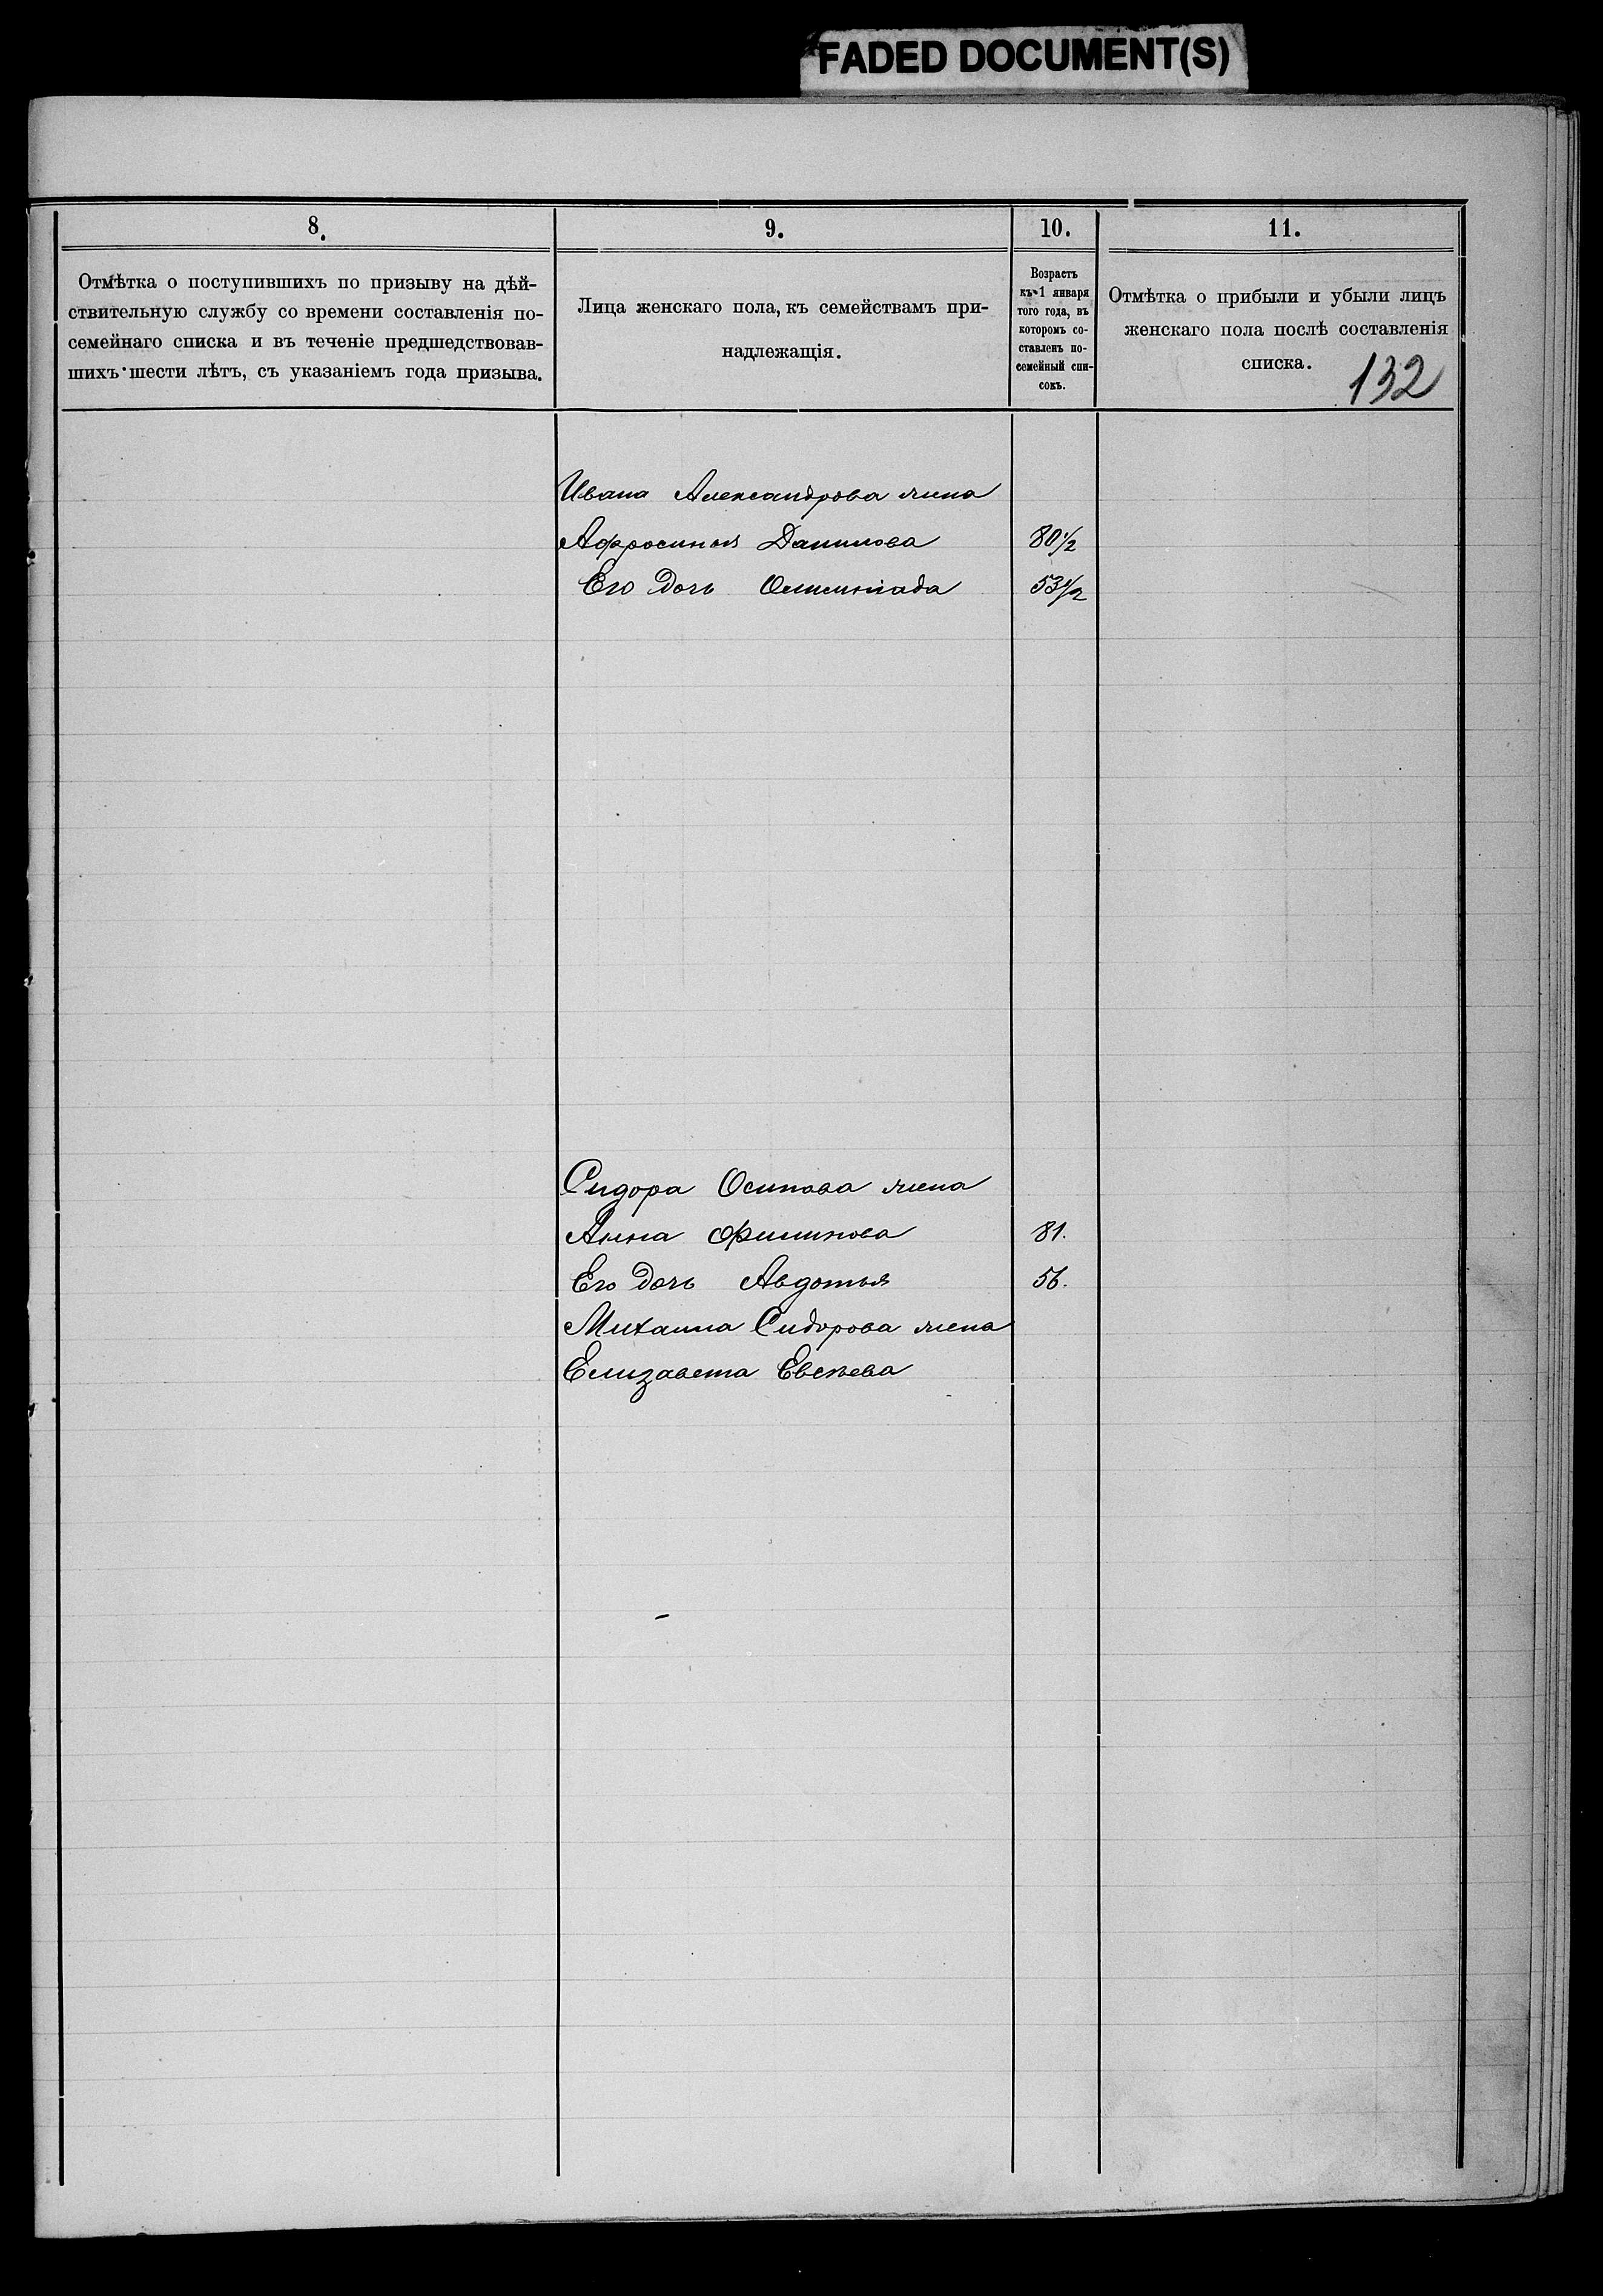 FADED DOCUMENT(S)
8.
9.
10.
11.
Отмѣтка о поступившихъ по призыву на дѣй-
ствительную службу со времени составленія по-
семейнаго списка и въ теченіе предшедствовав-
шихъ шести лѣтъ, съ указаніемъ года призыва.
Лица женскаго пола, къ семействамъ при-
надлежащія.
Возрастъ
къ 1 января
того года, въ
которомъ со-
ставленъ по-
семейный спи-
сокъ.
Отмѣтка о прибыли и убыли лицъ
женскаго пола послѣ составленія
списка.
132
Ивана Александрова жена
Афросинья Данилова 80½
Его дочь 53½
Сидора Осипова жена
Анна Филипова 81.
Его дочь Авдотья 56.
Михаила Сидорова жена
Елизавета Евсѣева